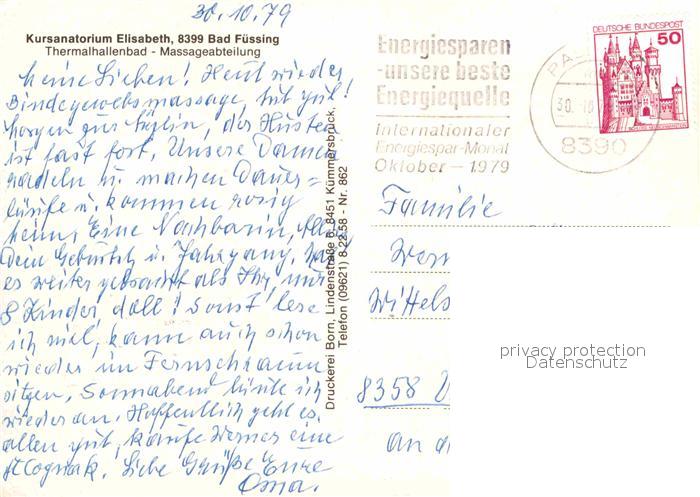 30.10.79
Kursanatorium Elisabeth, 8399 Bad Füssing
Thermalhallenbad - Massageabteilung
Meine Lieben! Heut wieder
Bindegewebsmassage, tut gut!
Morgen zur Ärztin, der Husten
ist fast fort. Unsere Damen
radeln u. machen Dauer-
läufe u. kommen rosig
heim. Eine Nachbarin,
Dein Geburtst. u. Jahrgang, hat
es weiter gebracht als Ihr, nur
8 Kinder, doll! Sonst lese
ich viel, kann auch schon
wieder im Fernsehraum
sitzen, Sonnabend läute ich
wieder an. Hoffentlich geht es
allen gut, kaufe Werner eine
Cognak. Liebe Grüße Eure
Oma.
Druckerei Born, Lindenstraße 6, 8451 Kümmersbruck,
Telefon (09621) 8 22 58 - Nr. 862
Energiesparen
-unsere beste
Energiequelle
Internationaler
Energiespar-Monat
Oktober – 1979
PA
30.10
8390
DEUTSCHE BUNDESPOST
50
Familie
Wern
Wittels
8358 V
an d
privacy protection
Datenschutz